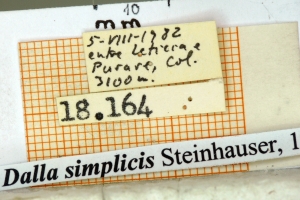 10
mm
5-VIII-1982
entre Leticia,
Purare, Col.
3100m.
18.164
Dalla simplicis Steinhauser, 1